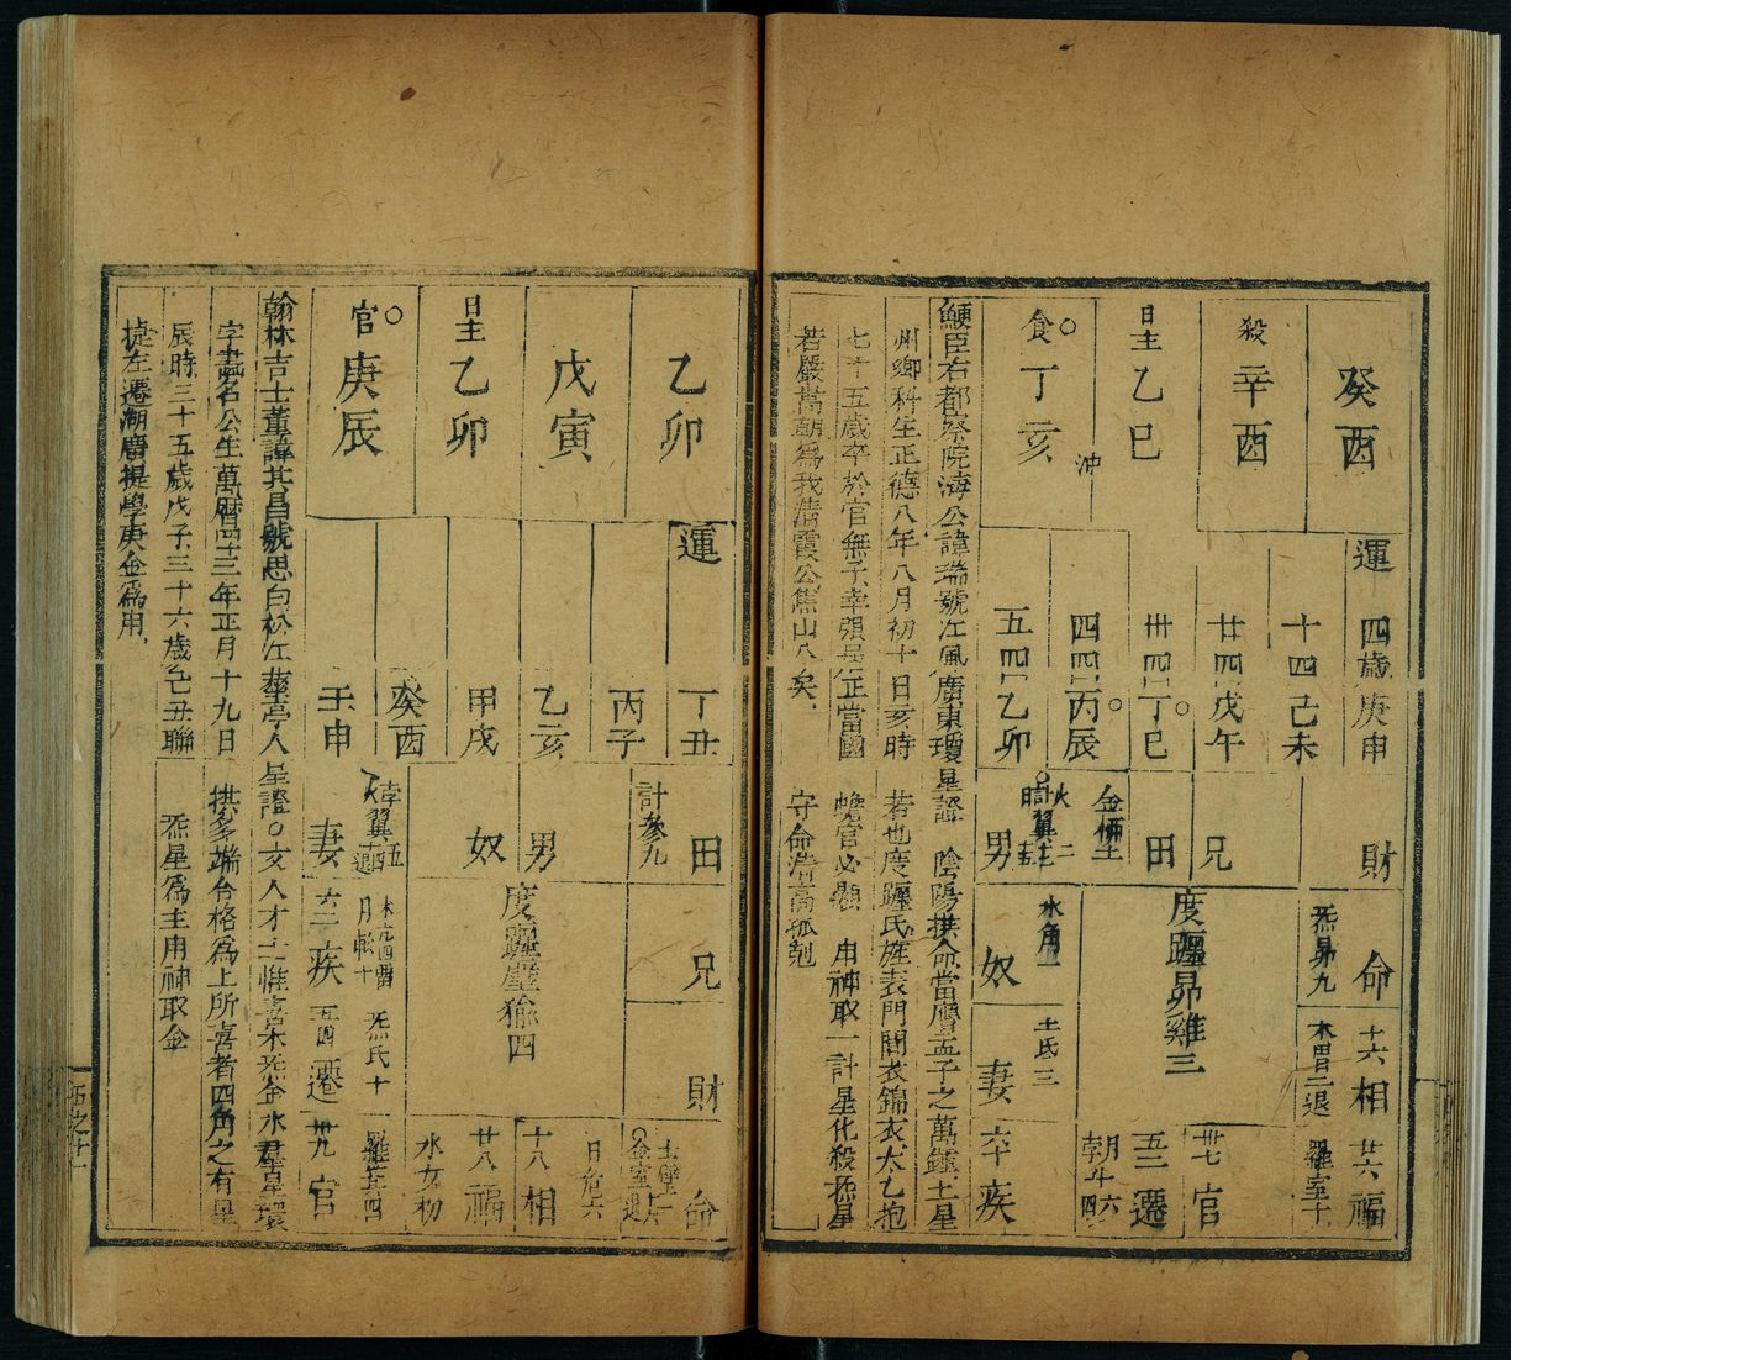 癸酉
殺 辛酉
日主 乙巳
沖
食 丁亥
運 四歲庚申
十四己未
廿四戊午
卅四丁巳
四四丙辰
五四乙卯
財
兄
田
男
命
十六相
廿六福
卅七官
遷
疾
妻
奴
金
炁昴九
水角一
土氐三
度躔昴雞三
鯁臣右都察院海公諱瑞號江風廣東瓊
州鄉科生正德八年八月初十日亥時
七十五歲卒於官無子幸張居正當國
若嚴嵩朝爲我清霞公焦山八矣
星證 陰陽拱命當膺五子之萬鍾土星
若也度躔氐旌表門閭衣錦衣太乙抱
蟾官必顯 用神取一計星化殺炁星
守命清高孤剋
乙卯
戊寅
日主 乙卯
官 庚辰
運
丁丑
丙子
乙亥
甲戌
癸酉
壬申
田
計參九
男
奴
妻
兄
財
疾
遷
官
命
日危六
十八相
廿八福
水女初
炁氐十
度躔壁㺄四
翰林吉士董諱其昌號思白松江華亭人
字畫名公生萬曆四十三年正月十九日
辰時三十五歲戊子三十六歲己丑聯
捷左遷湖廣提學庚金爲用
星證○文人才士惟喜木炁金水群星環
拱多端合格爲上所喜者四角之有星
炁星爲主用神取金